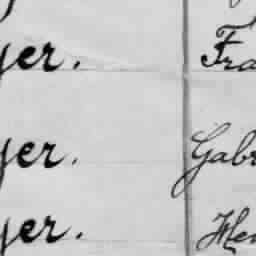 yer. Fra
yer. Gabr
yer. Hen